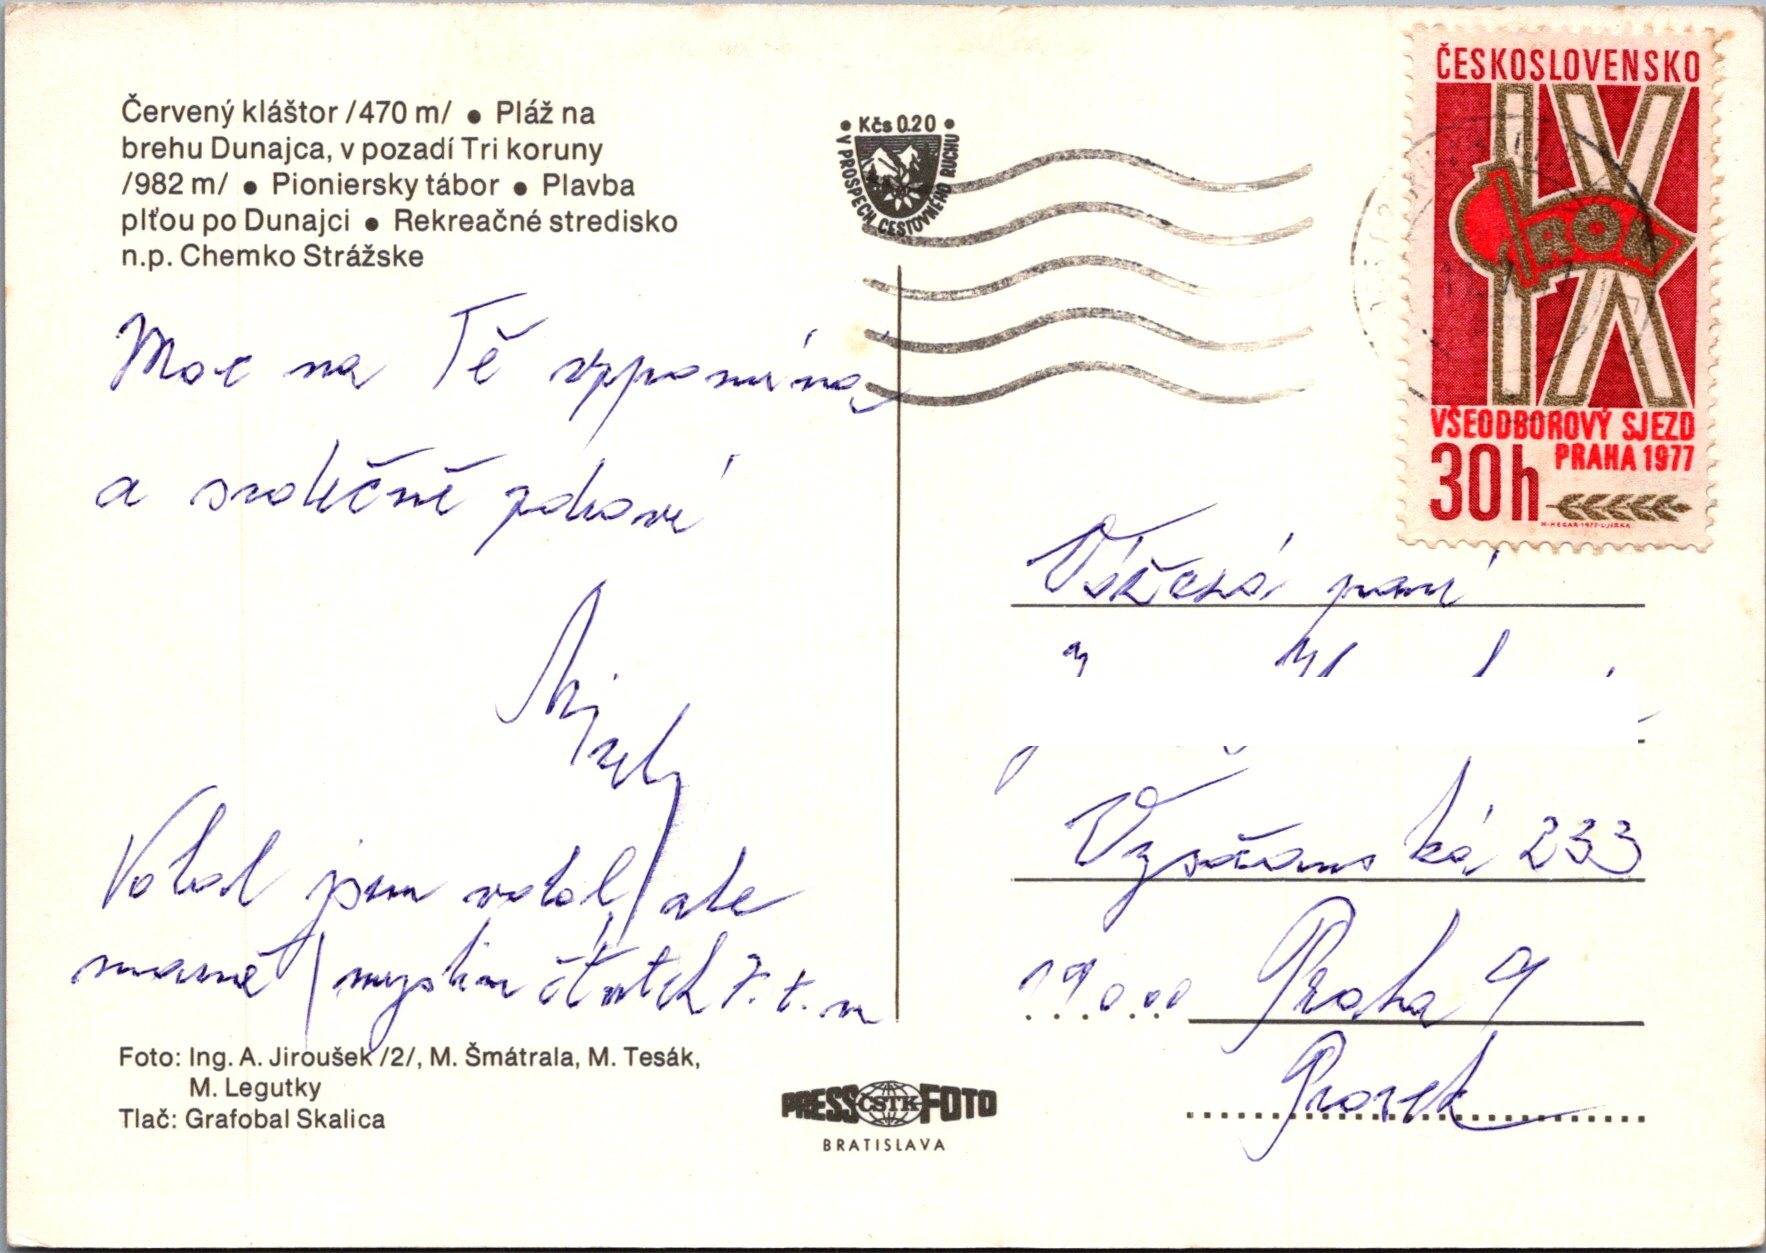 Červený kláštor /470 m/ ● Pláž na
brehu Dunajca, v pozadí Tri koruny
/982 m/ ● Pioniersky tábor ● Plavba
plťou po Dunajci ● Rekreačné stredisko
n.p. Chemko Strážske
• Kčs 0.20 •
V PROSPECH CESTOVNÉHO RUCHU
ČESKOSLOVENSKO
IX
VŠEODBOROVÝ SJEZD
PRAHA 1977
30h
Moc na Tě vzpomíná
a srdečně zdraví
Volal jsem volal, ale
marně / myslím čtvrtek 7. t. m
Vážená paní
Vysočanská 233
190 00 Praha 9
Prosek
Foto: Ing. A. Jiroušek /2/, M. Šmátrala, M. Tesák,
M. Legutky
Tlač: Grafobal Skalica
PRESS ČSTK FOTO
BRATISLAVA